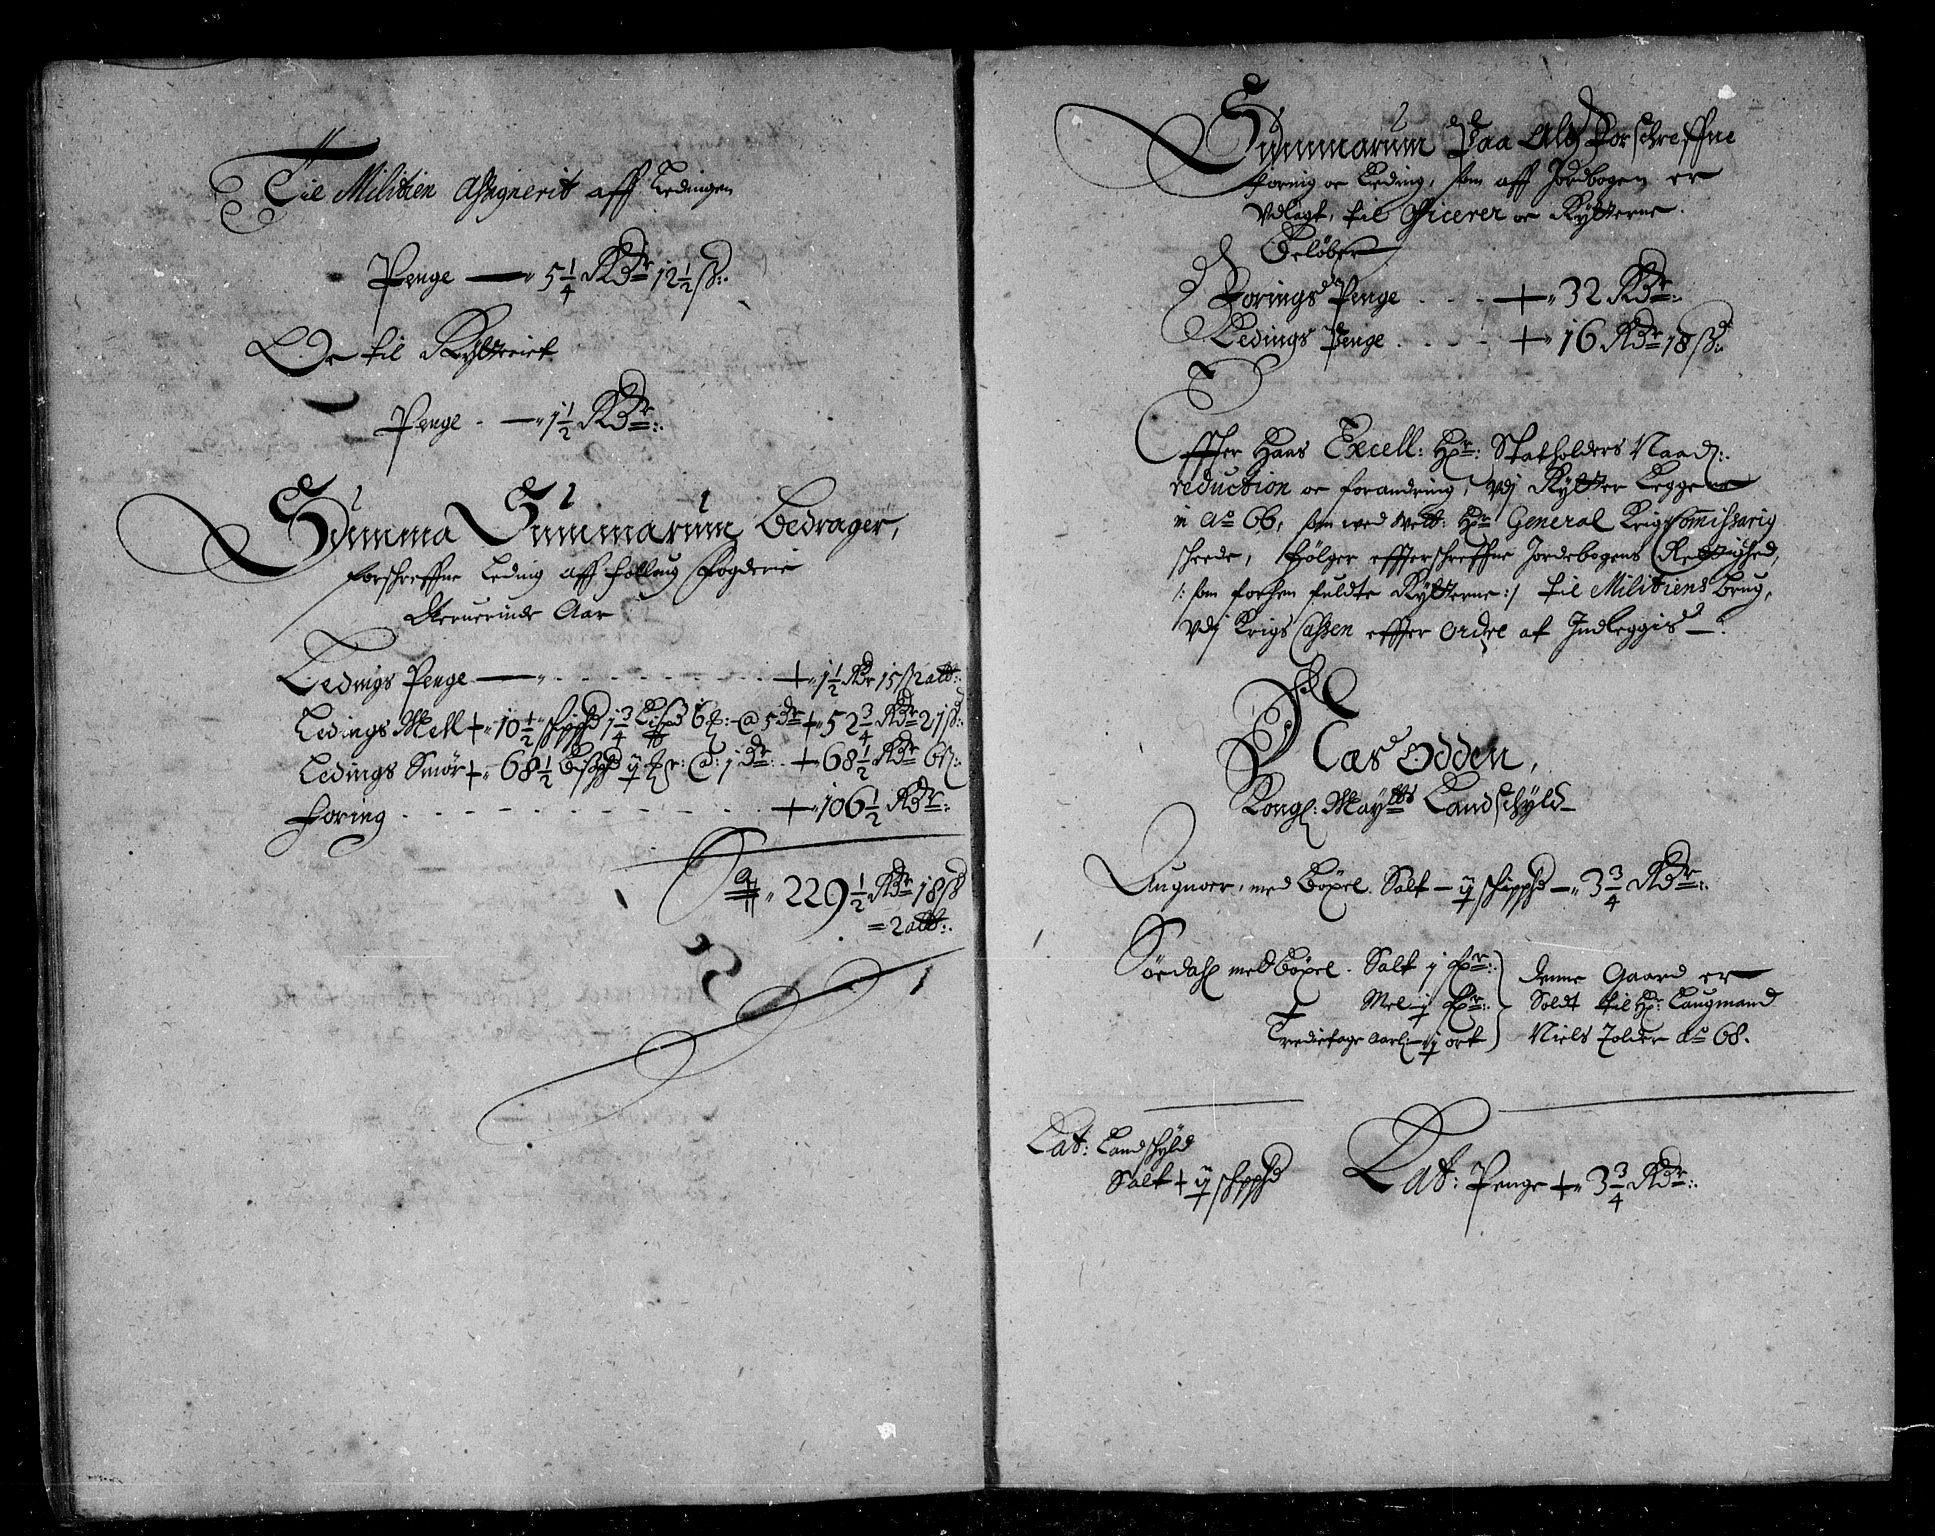 Til Militien Assignerit aff Ledingen
Penge — 5 1/4 Rdr 12 1/2 ß:
Oc til Rytteriet
Penge — 1 1/2 Rdr:
Summa Summarum Bedrager,
forschreffne Leding aff folloug fogderie
Aar
Ledings Penge — 1 1/2 Rdr 15 ß 2 alb:
Ledings Mell + 10 1/2 schippd 1 3/4 Lispd 6 @ 5 dr + 52 3/4 Rdr 21 ß:
Ledings Smør + 68 1/2 Bißpd ij @ j dr: + 68 1/2 Rdr 6 ß:
Foring + 106 1/2 Rdr:
Sa 229 1/2 Rdr 18 ß
= 2 alb:
Summarum Paa Alt Forschreffne
foring oc Leding, som aff Jordbogen er
Vdlagt, til Officerer oc Rytterne.
Beløber
Forings Penge + 32 Rdr:
Ledings Penge + 16 Rdr 18 ß:
Effter Hans Excell: Hr: Statholders Naad:
reduction oc forandring, vdj Rytter Leggene
in Ao 66, som med Welb: Hr General Krigs Comissarig
scheede, følger effterschreffne Jordebogens Rettighed,
/: som forhen fuldte Rytterne :/ til Militiens brug,
vdj Krigs Cassen effter Ordre at Indleggis —
Næs Odden,
Kongl: Maytts Landschyld
Augnoer, med Bøxel. Salt — ij schippd — 3 3/4 Rdr:
Sørdahl med Bøxel. Salt j fr: Denne Gaard er
Mel ij fr: Soldt til Hr: Laugmand
Tredietage aarl: — ij ort Niels Tolder Ao 68.
Lat: Landschyld
Salt + ij schippd Lat: Penge + 3 3/4 Rdr: